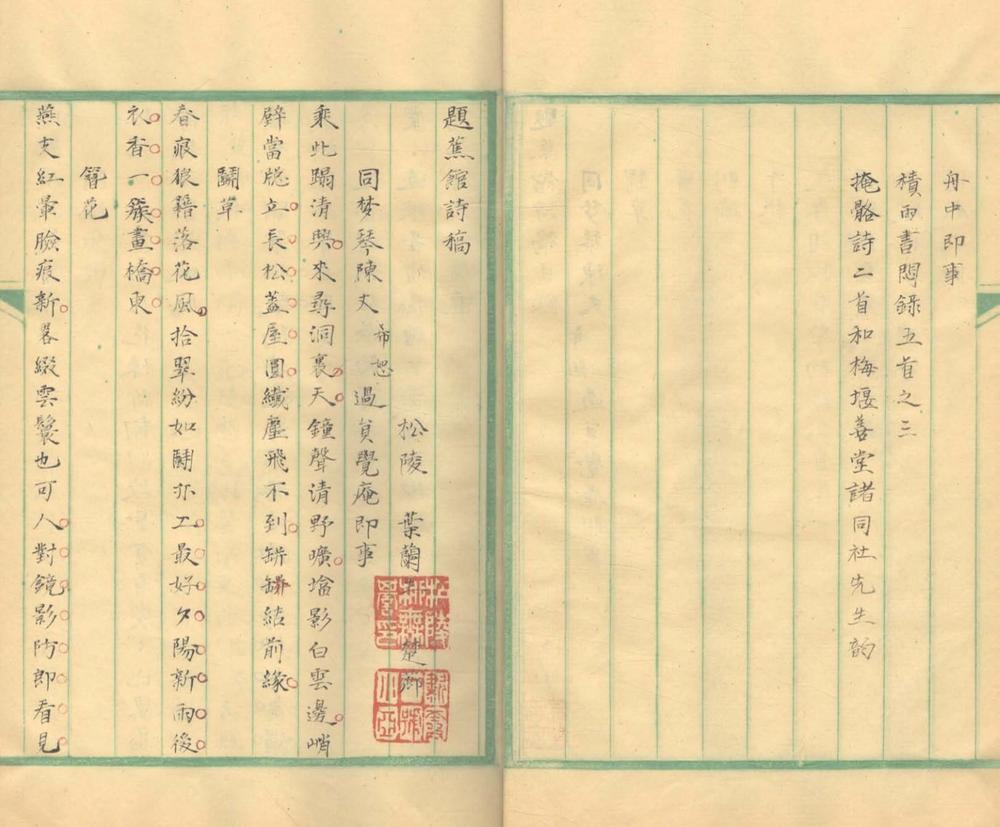 舟中即事
積雨書悶錄五首之三
掩骼詩二首和梅堰善堂諸同社先生韵
題蕉館詩稿
松陵 葉蘭 楚卿
同梦琴陳丈希恕過貟覺庵即事
乘此蹋清興來尋洞裏天鐘聲清野曠墖影白雲邊峭
壁當牕立長松蓋屋圓纎塵飛不到缾鉢結前緣
鬭草
春痕狼籍落花風拾翠紛如鬭亦工最好夕陽新雨後
衣香一簇畫橋東
簪花
燕支紅暈臉痕新畧綴雲鬟也可人對鏡影防郎看見